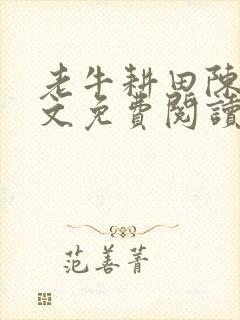 老牛耕田陳
文免費閱讀
范善菁